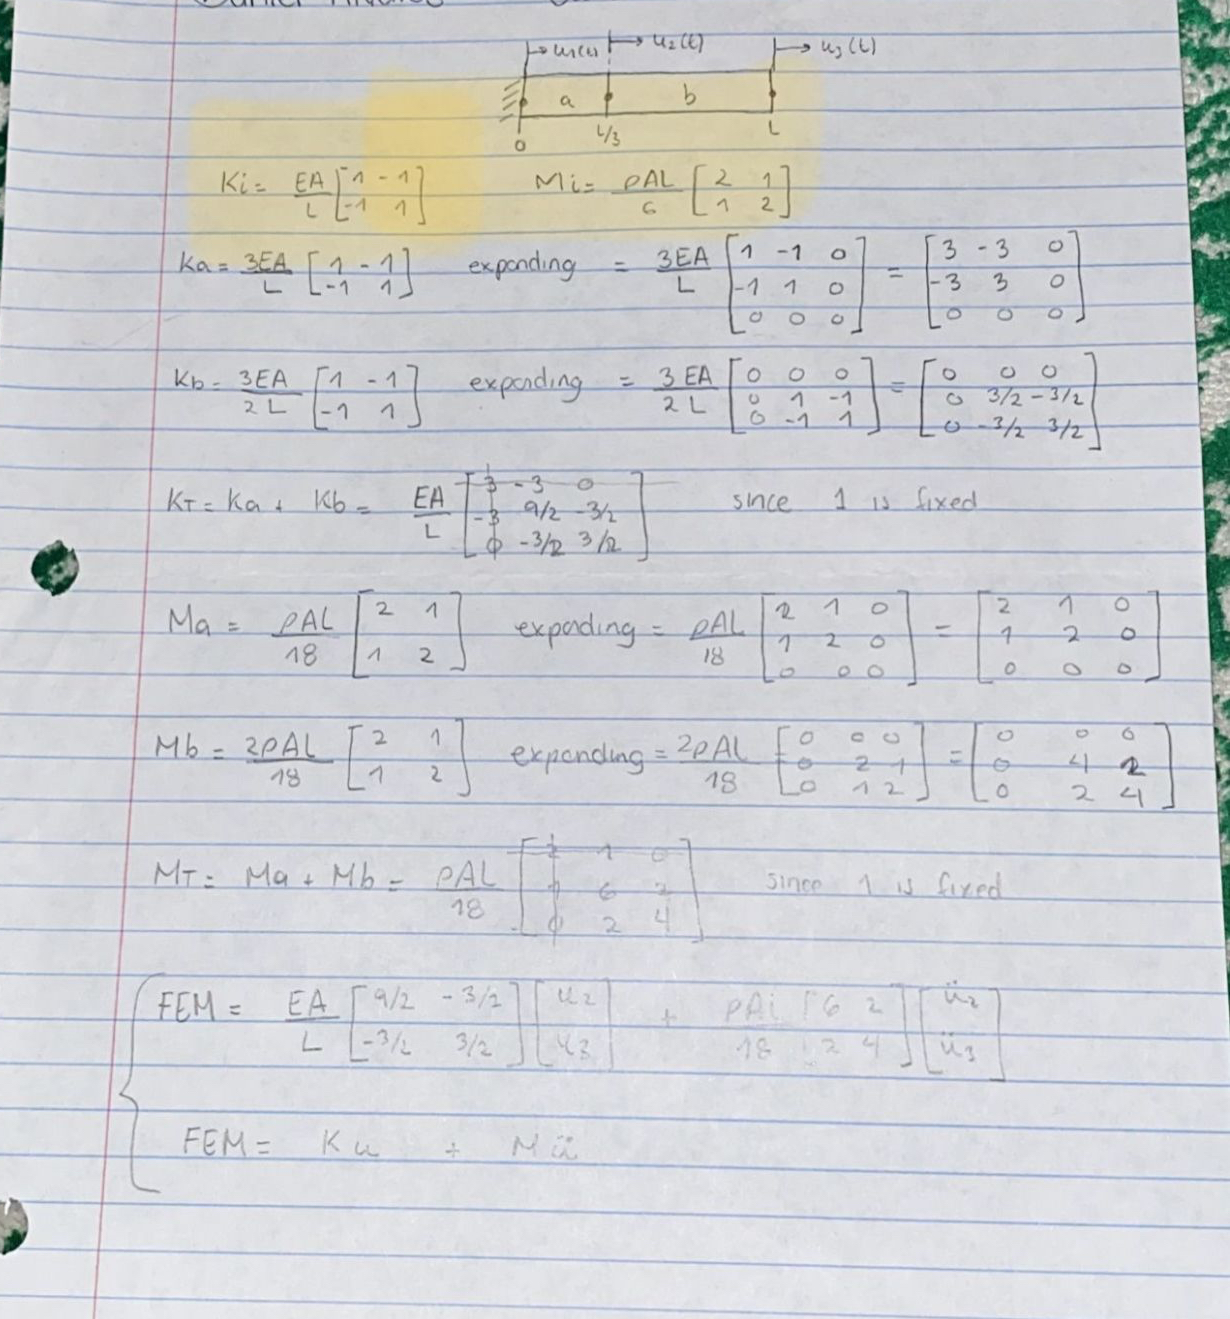 u₁(t) u₂(t) u₃(t)
a b
0 L/3 L
Ki = EA/L [1 -1; -1 1] Mi = ρAL/6 [2 1; 1 2]
Ka = 3EA/L [1 -1; -1 1] expanding = 3EA/L [1 -1 0; -1 1 0; 0 0 0] = [3 -3 0; -3 3 0; 0 0 0]
Kb = 3EA/2L [1 -1; -1 1] expanding = 3EA/2L [0 0 0; 0 1 -1; 0 -1 1] = [0 0 0; 0 3/2 -3/2; 0 -3/2 3/2]
KT = Ka + Kb = EA/L [3 -3 0; -3 9/2 -3/2; 0 -3/2 3/2] since 1 is fixed
Ma = ρAL/18 [2 1; 1 2] expanding = ρAL/18 [2 1 0; 1 2 0; 0 0 0] = [2 1 0; 1 2 0; 0 0 0]
Mb = 2ρAL/18 [2 1; 1 2] expanding = 2ρAL/18 [0 0 0; 0 2 1; 0 1 2] = [0 0 0; 0 4 2; 0 2 4]
MT = Ma + Mb = ρAL/18 [2 1 0; 1 6 2; 0 2 4] since 1 is fixed
FEM = EA/L [9/2 -3/2; -3/2 3/2] [u₂; u₃] + ρAL/18 [6 2; 2 4] [ü₂; ü₃]
FEM = Ku + Mü